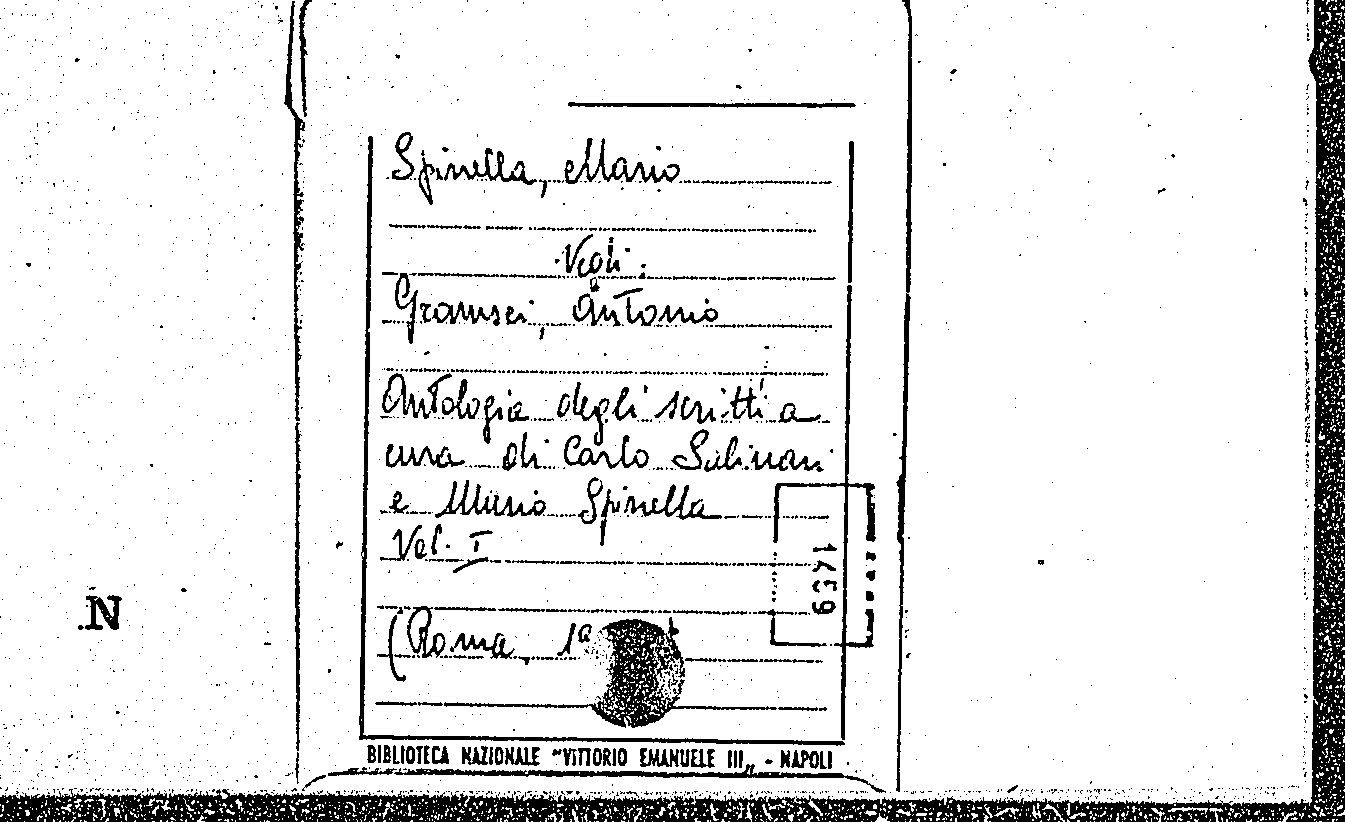 Spinella, Mario
Vedi:
Gramsci, Antonio
Antologia degli scritti a
cura di Carlo Salinari
e Mario Spinella
Vol. I
(Roma, 19
1439
N
BIBLIOTECA NAZIONALE "VITTORIO EMANUELE III„ - NAPOLI